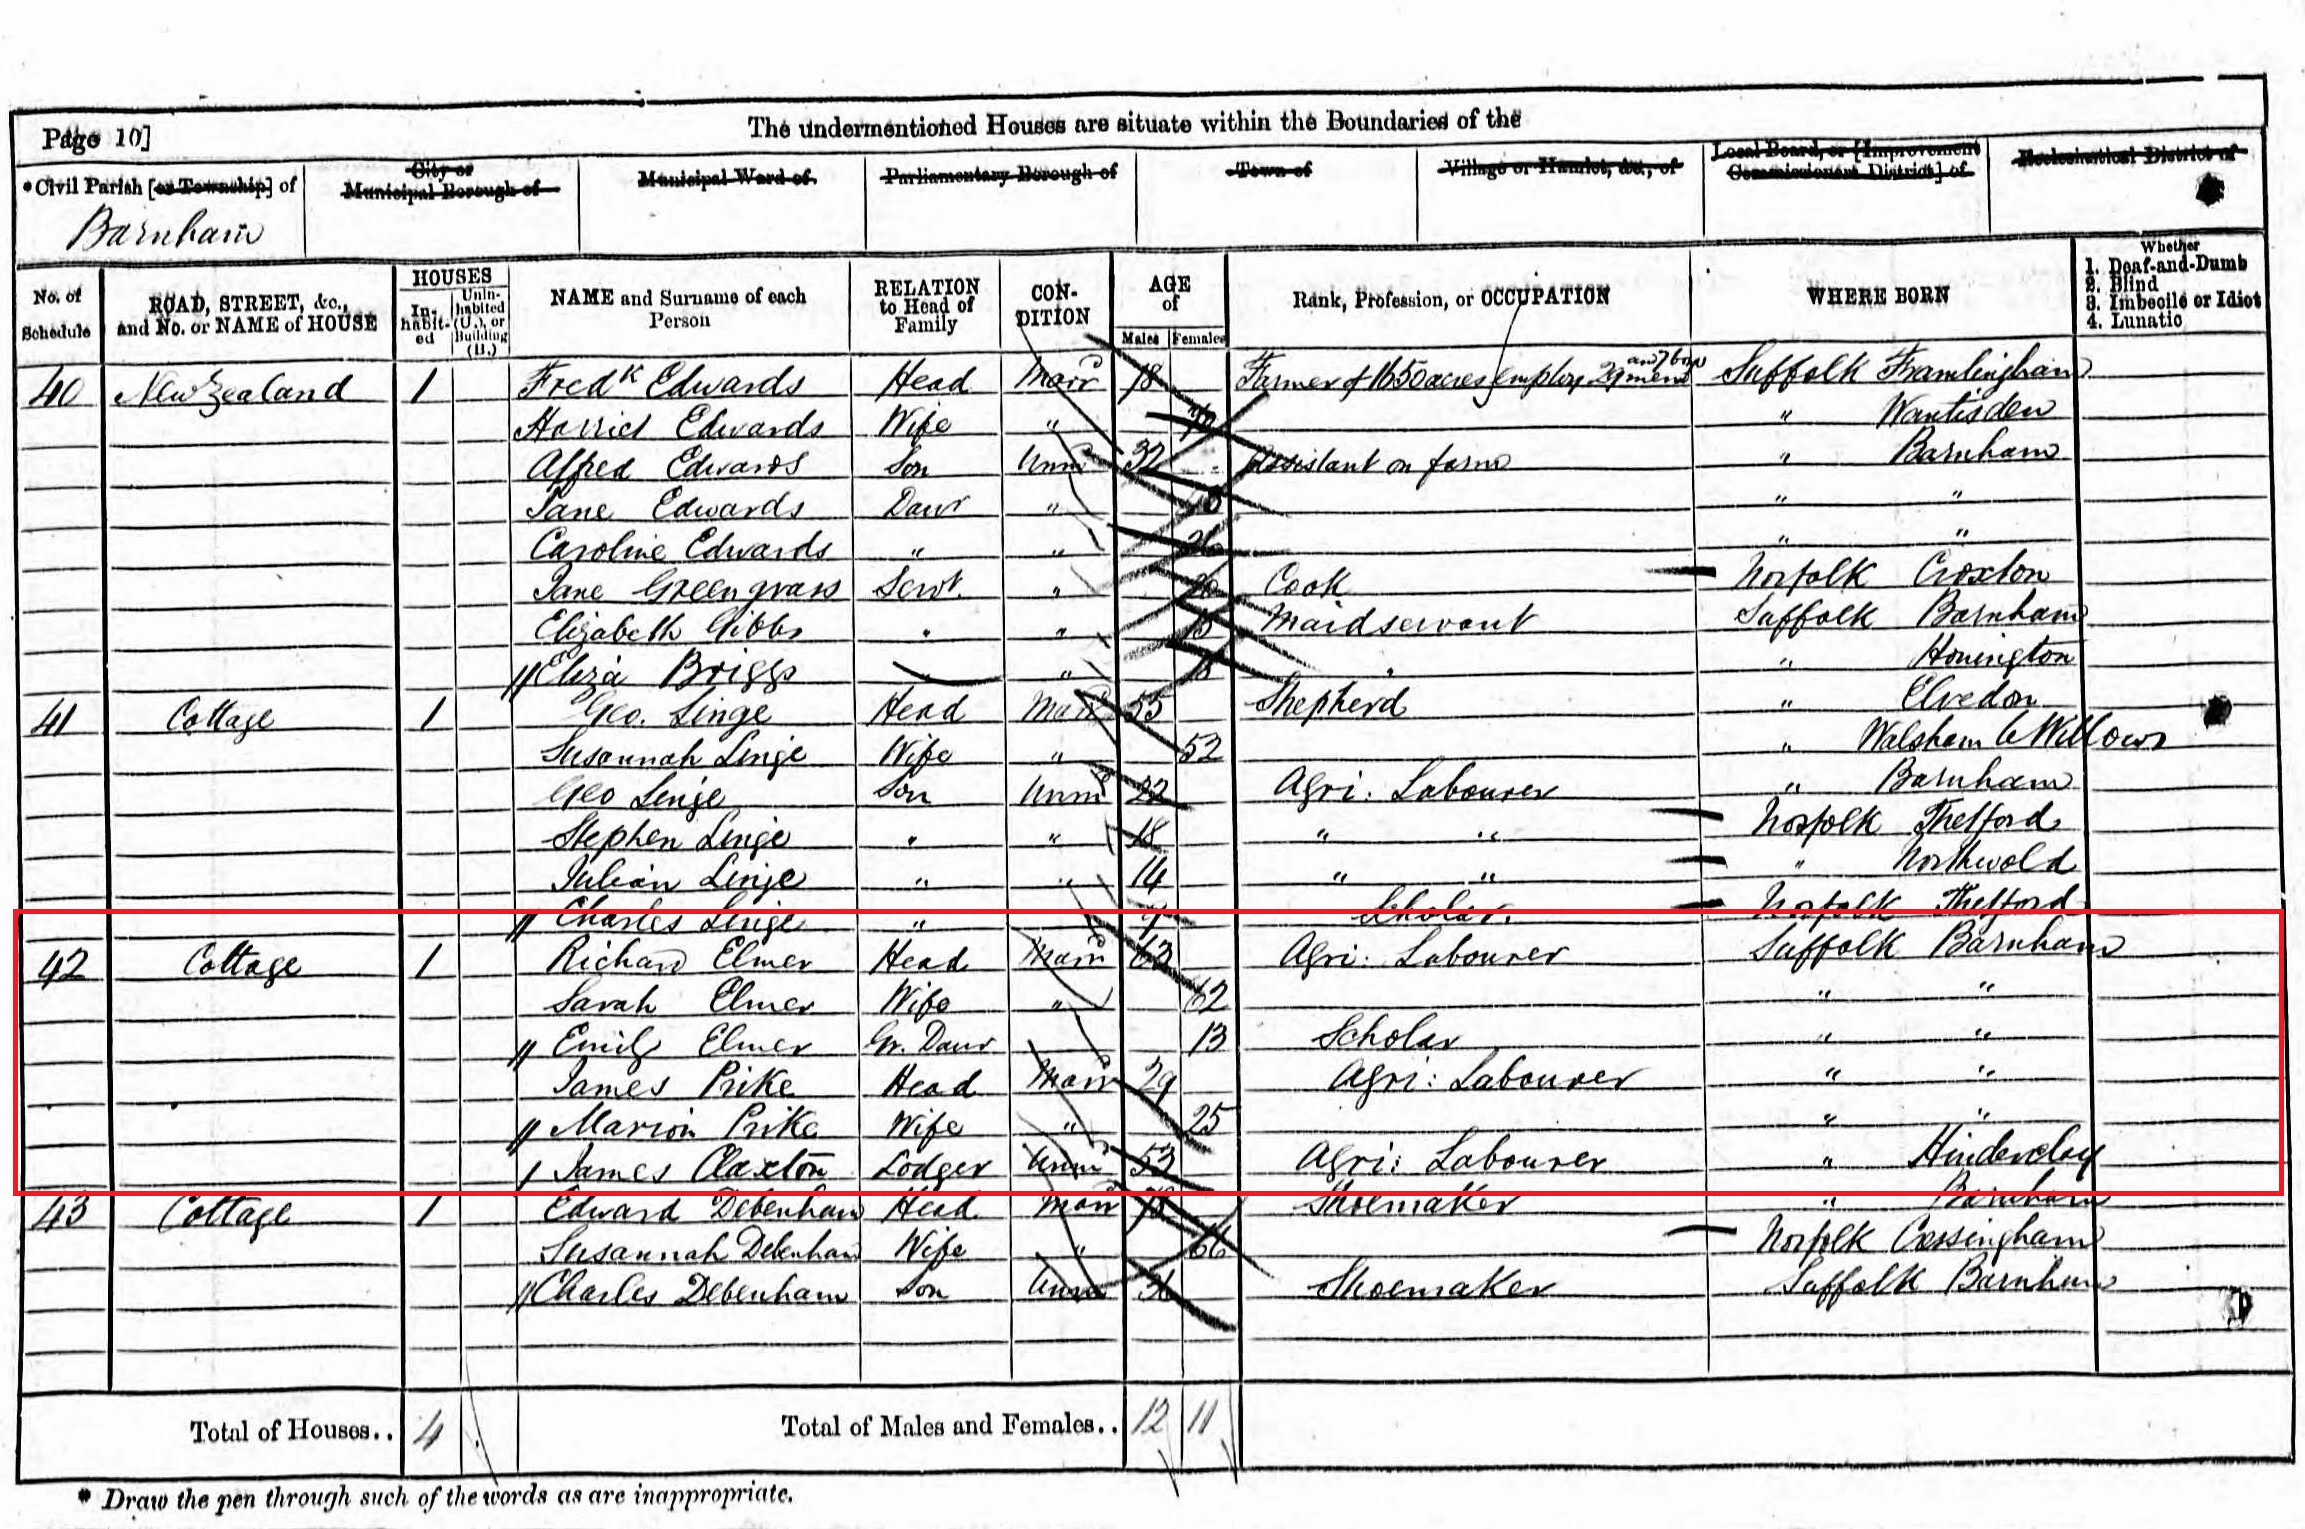 The undermentioned Houses are situate within the Boundaries of the
Page 10]
*Civil Parish [or Township] of Barnham
City or Municipal Borough of
Municipal Ward of
Parliamentary Borough of
Town of
Village or Hamlet, &c., of
Local Board, or [Improvement Commissioners District] of
Ecclesiastical District of
No. of Schedule
ROAD, STREET, &c., and No. or NAME of HOUSE
HOUSES
In-habit-ed
Unin-habited (U.), or Building (B.)
NAME and Surname of each Person
RELATION to Head of Family
CON-DITION
AGE of
Males Females
Rank, Profession, or OCCUPATION
WHERE BORN
Whether
1. Deaf-and-Dumb
2. Blind
3. Imbecile or Idiot
4. Lunatic
40 New Zealand 1 Fredk Edwards Head Marr 78 Farmer of 1650 acres employ 29 men and 7 boys Suffolk Framlingham
Harriet Edwards Wife " " Wantisden
Alfred Edwards Son Unm 32 Assistant on farm " Barnham
Jane Edwards Daur " " "
Caroline Edwards " " 26 " "
Jane Greengrass Servt " Cook Norfolk Croxton
Elizabeth Gibbs " " Maidservant Suffolk Barnham
Eliza Briggs " 18 " " Honington
41 Cottage 1 Geo. Linge Head Marr 55 Shepherd " Elvedon
Susannah Linge Wife " 52 " Walsham le Willows
Geo Linge Son Unm 22 Agri: Labourer " Barnham
Stephen Linge " " 18 " " Norfolk Thetford
Julian Linge " " 14 " " " Northwold
Charles Linge " 9 Scholar Norfolk Thetford
42 Cottage 1 Richard Elmer Head Marr 63 Agri: Labourer Suffolk Barnham
Sarah Elmer Wife " 62 " "
Emily Elmer Gr. Daur 13 Scholar " "
James Prike Head Marr 29 Agri: Labourer " "
Marion Prike Wife " 25 " "
James Claxton Lodger Unm 53 Agri: Labourer " Hinderclay
43 Cottage 1 Edward Debenham Head Marr Shoemaker " Barnham
Susannah Debenham Wife " 66 Norfolk Cassingham
Charles Debenham Son Unm Shoemaker Suffolk Barnham
Total of Houses.. 4
Total of Males and Females.. 12 11
* Draw the pen through such of the words as are inappropriate.